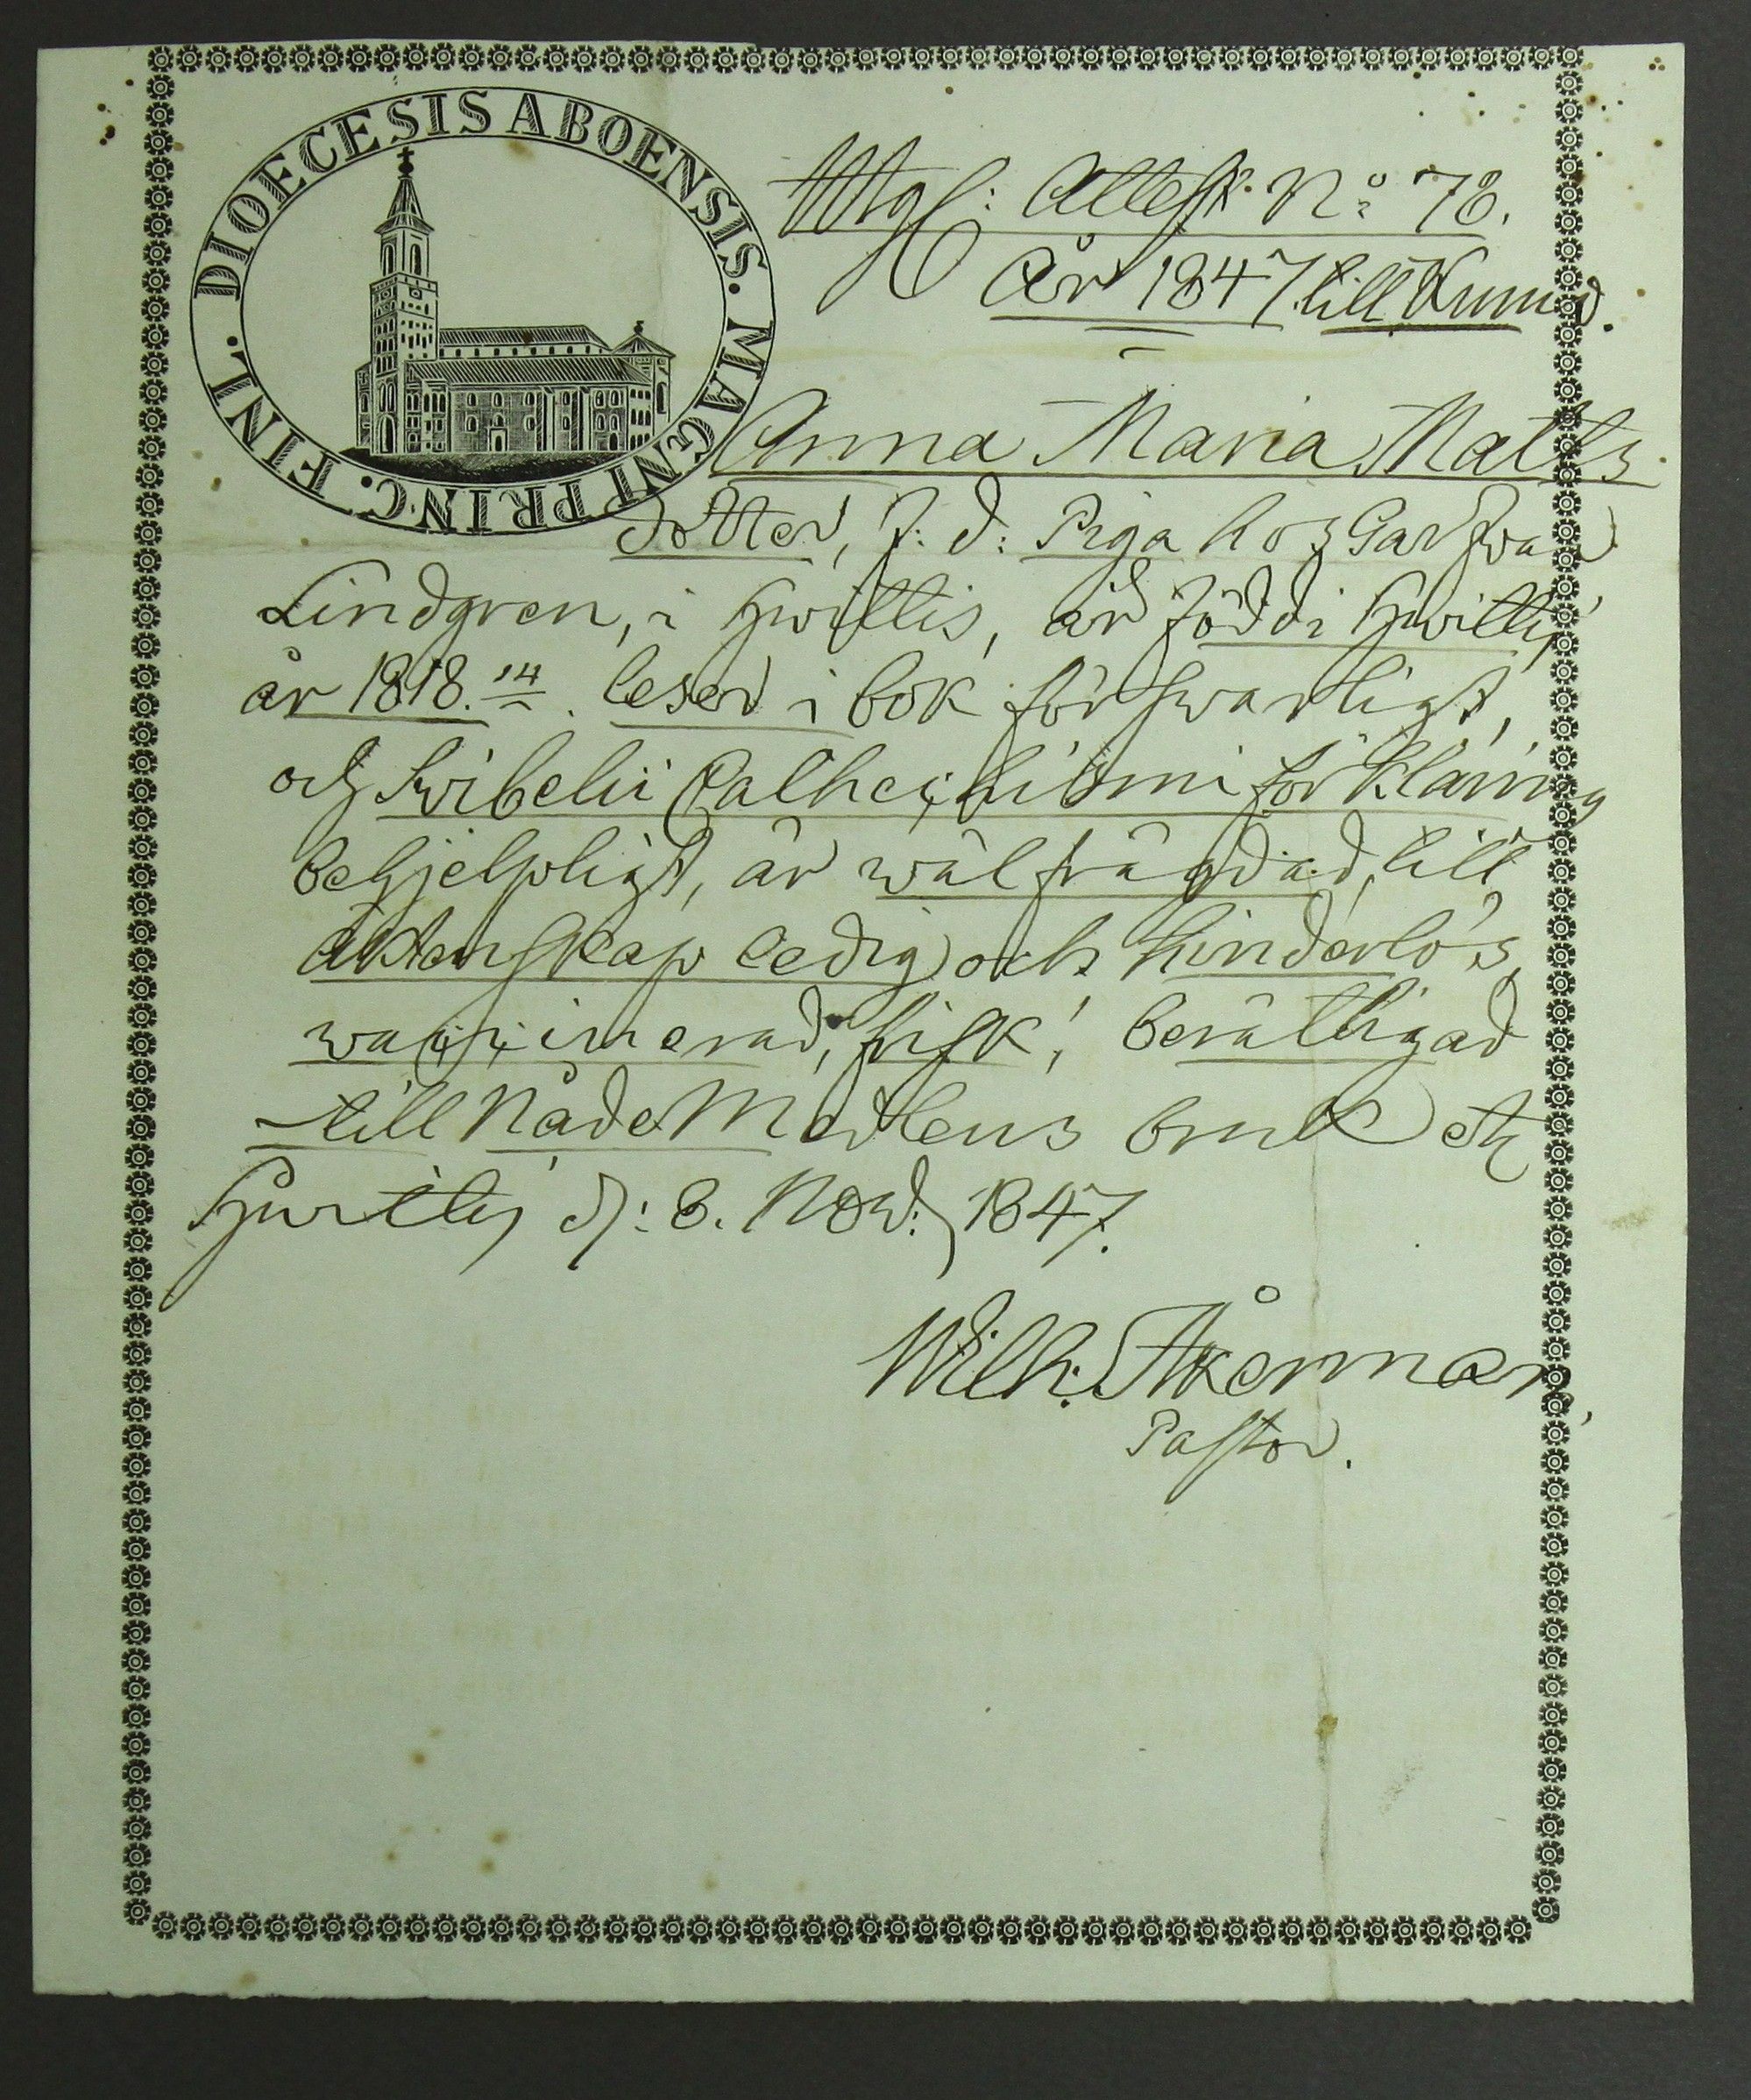 DIOECESIS ABOENSIS. MAGNI PRINC. FINL.
Utgf: Attest N:o 78.
År 1847 till Kumo.
Anna Maria Matts
dotter, f: d: Piga hos Garfwar
Lindgren, i Hwittis, är född i Hwittis
år 1818. 14/ leser i bok förswarligt,
och Swibelii Cathechismi förklaring
behjelpligt, är wälfrägdad, till
äktenskap ledig och hinderlös,
waccinerad, frisk, berättigad
till Nåde Medlens bruk etc
Hwittis d: 8. Nov: 1847.
Wilh. Åkerman,
Pastor.